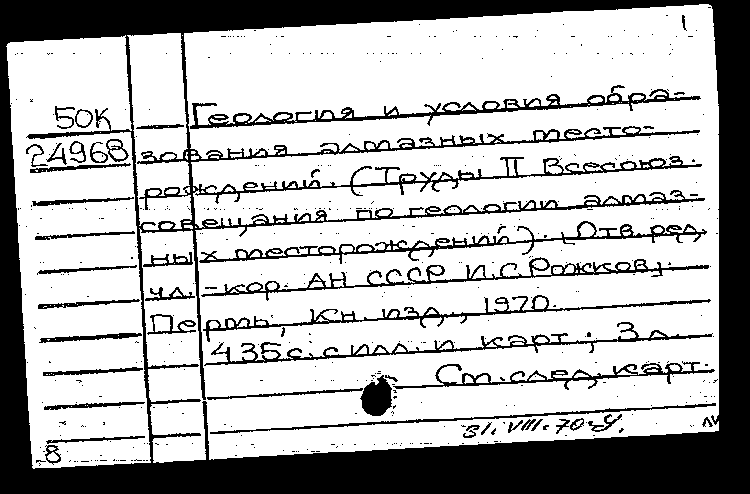 1
50К
24968
Геология и условия обра-
зования алмазных место-
рождений. (Труды II Всесоюз.
совещания по геологии алмаз-
ных месторождений). [Отв. ред.
чл.-кор. АН СССР И.С.Рожков].
Пермь, Кн. изд., 1970.
435 с. с илл. и карт ; 3 л.
См. след. карт.
31.VIII.70.
8